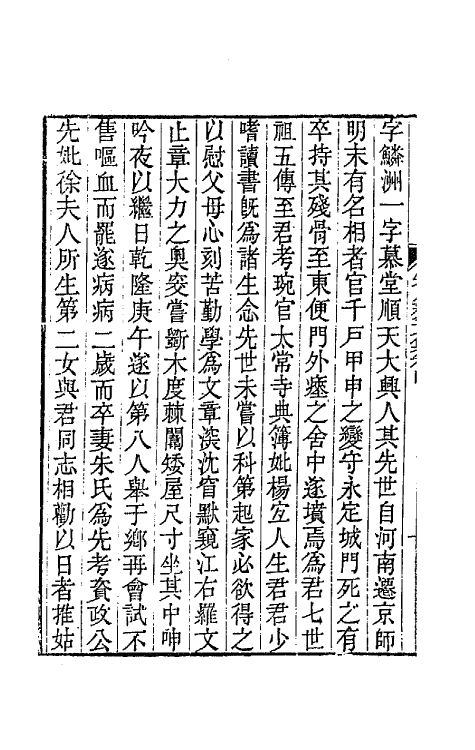 字鱗洲一字慕堂順天大興人其先世自河南遷京師
明末有名相者官千戸甲申之變守永定城門死之有
卒持其殘骨至東便門外瘞之舍中遂墳焉為君七世
祖五傳至君考琬官太常寺典簿妣楊宜人生君君少
嗜讀書旣為諸生念先世未嘗以科第起家必欲得之
以慰父母心刻苦勤學為文章深沈窅默窺江右羅文
止章大力之奥窔嘗斵木度棘闈矮屋尺寸坐其中呻
吟夜以繼日乾隆庚午遂以第八人舉于鄉再會試不
售嘔血而罷遂病病二歲而卒妻朱氏為先考資政公
先妣徐夫人所生第二女與君同志相勸以日者推姑